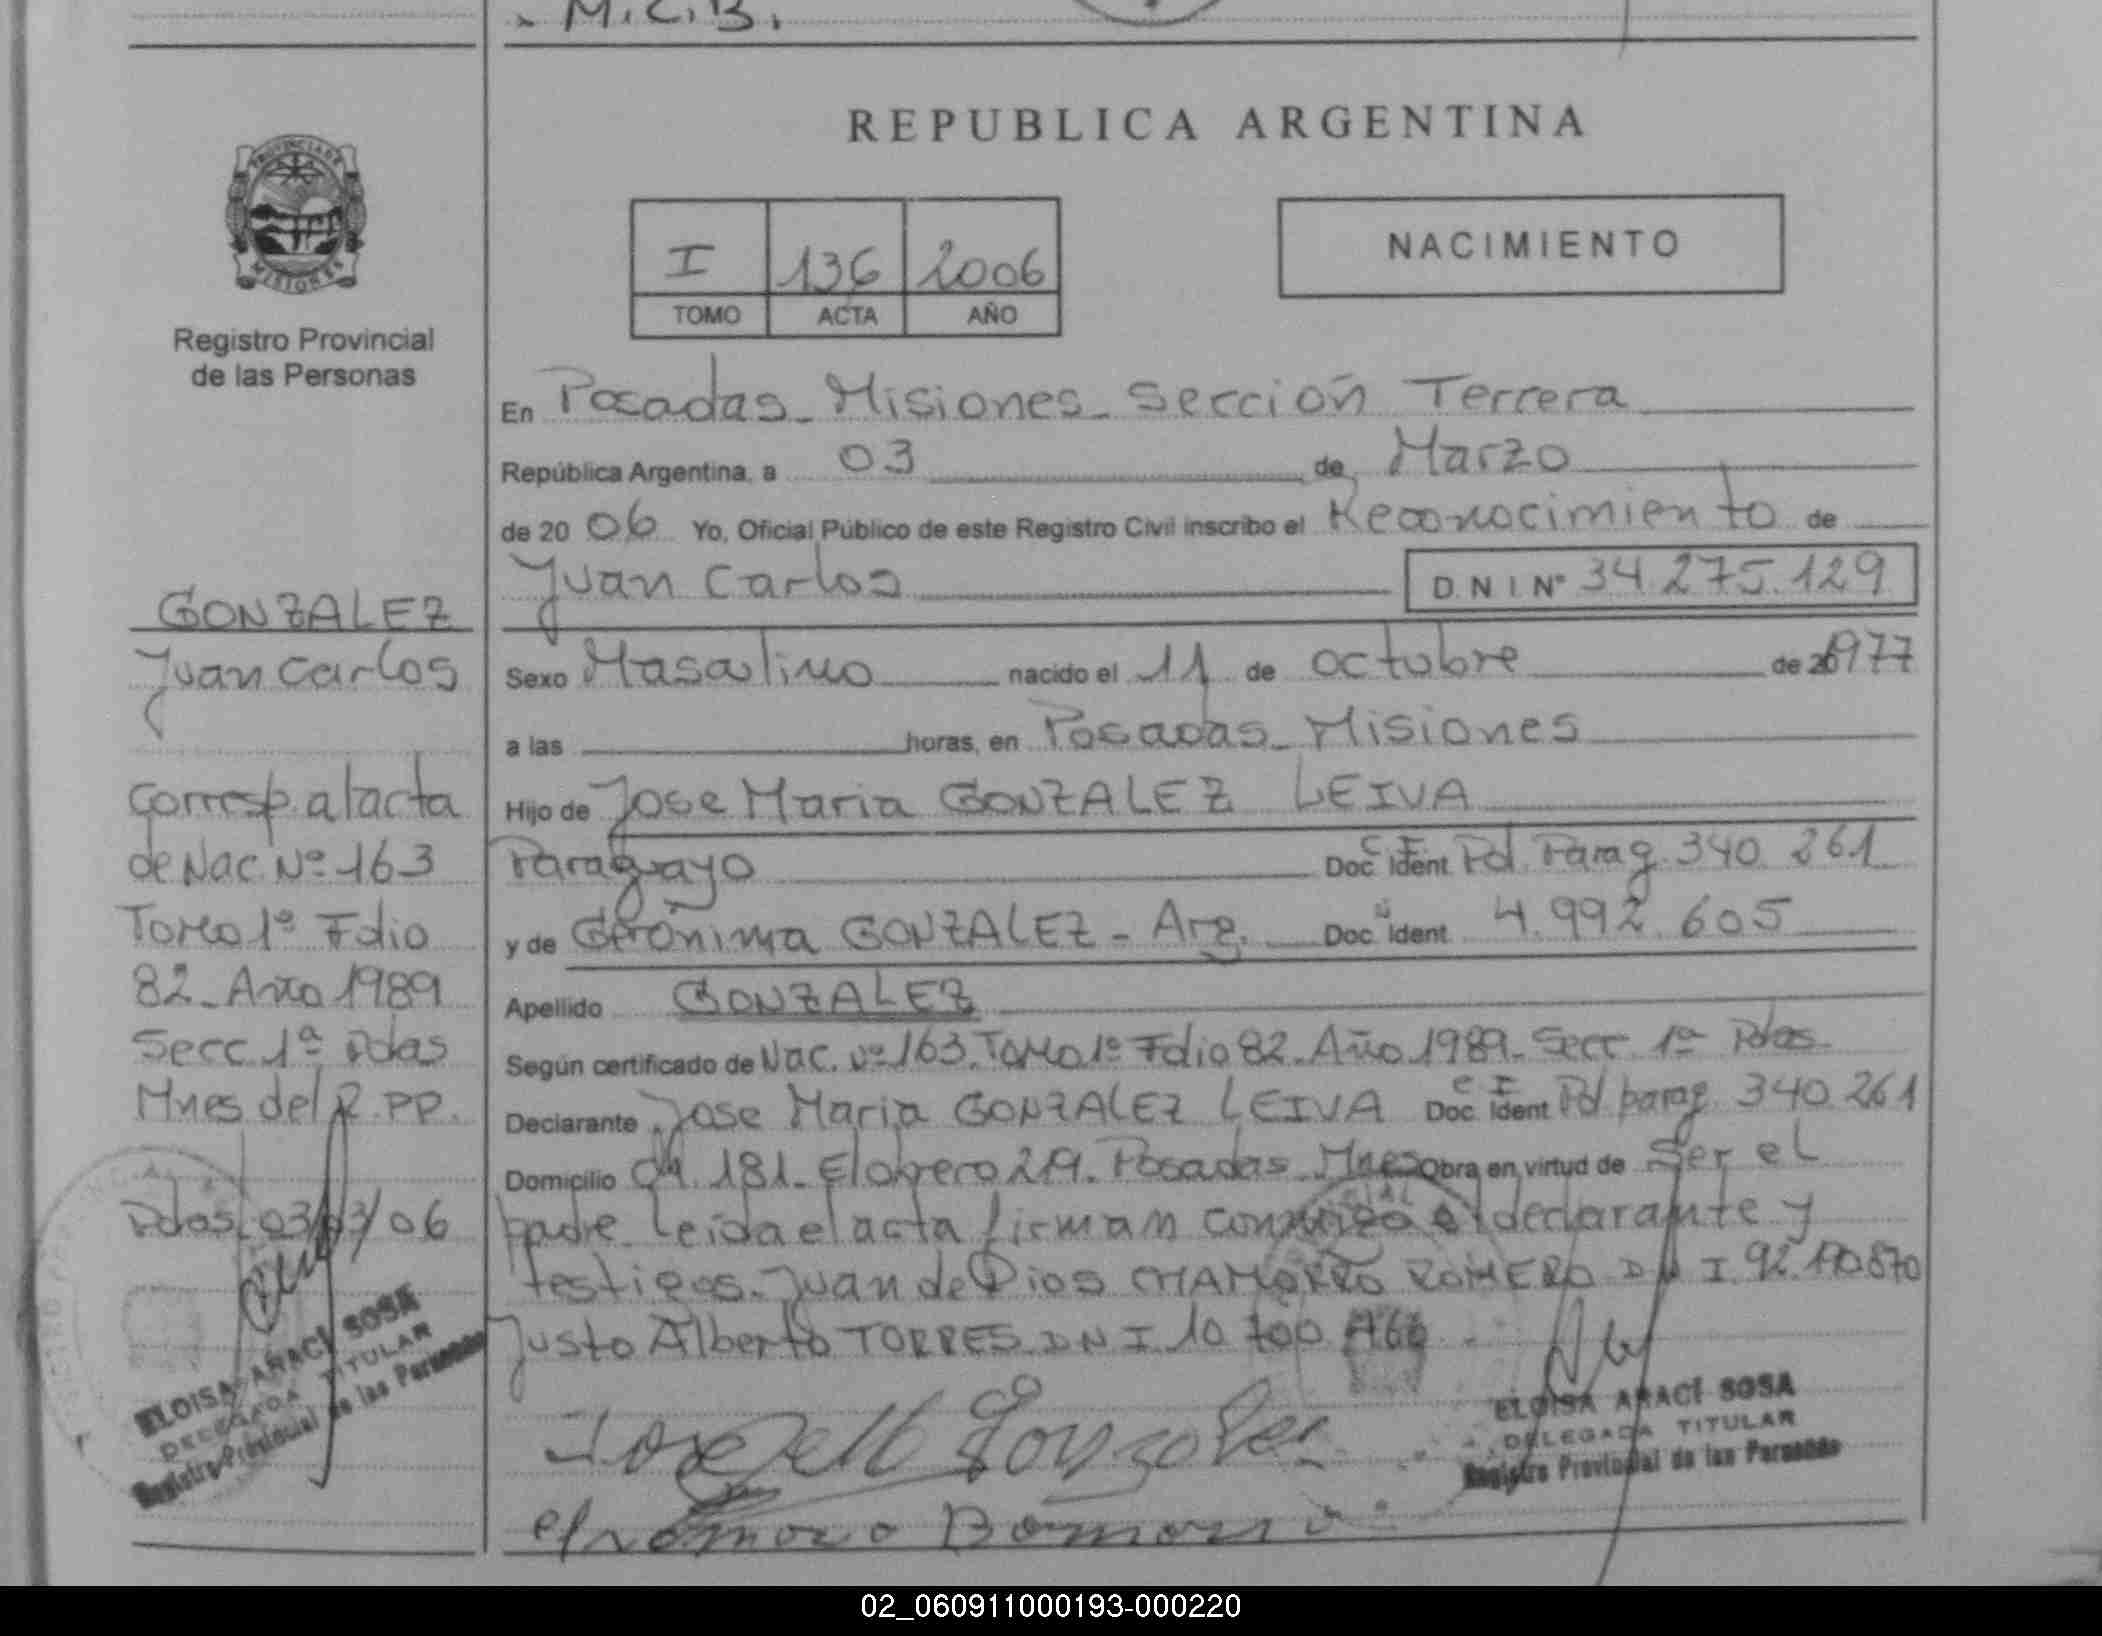 - M.C.B.
REPUBLICA ARGENTINA
PROVINCIA DE
MISIONES
I 136 2006
TOMO ACTA AÑO
NACIMIENTO
Registro Provincial
de las Personas
En Posadas - Misiones - Sección Tercera
República Argentina, a 03 de Marzo
de 20 06 Yo, Oficial Público de este Registro Civil inscribo el Reconocimiento de
Juan Carlos D N I Nº 34.275.129
Sexo Masculino nacido el 11 de octubre de 1977
a las horas, en Posadas - Misiones
Hijo de Jose Maria GONZALEZ LEIVA
Paraguayo Doc. Ident C I Pol. Parag. 340.261
y de Gerónima GONZALEZ - Arg. Doc. Ident 4.992.605
Apellido GONZALEZ
Según certificado de Nac. Nº 163. Tomo 1º Folio 82 - Año 1989 - Secc. 1ª Pdas
Declarante Jose Maria GONZALEZ LEIVA Doc. Ident C I Pol. parag. 340.261
Domicilio Ch. 181 - El obrero 219 - Posadas - Mnes Obra en virtud de Ser el
padre Leida el acta firman conmigo el declarante y
testigos - Juan de Dios CHAMORRO ROMERO D N I 92.190.870
Justo Alberto TORRES D N I 10.700
GONZALEZ
Juan Carlos
Corresp. al acta
de Nac. Nº 163
Tomo 1º Folio
82 - Año 1989
Secc. 1ª Pdas
Mnes del R. PP.
Pdas. 03/03/06
ELOISA ARACÍ SOSA
DELEGADA TITULAR
Registro Provincial de las Personas
ELOISA ARACÍ SOSA
DELEGADA TITULAR
Registro Provincial de las Personas
02_060911000193-000220